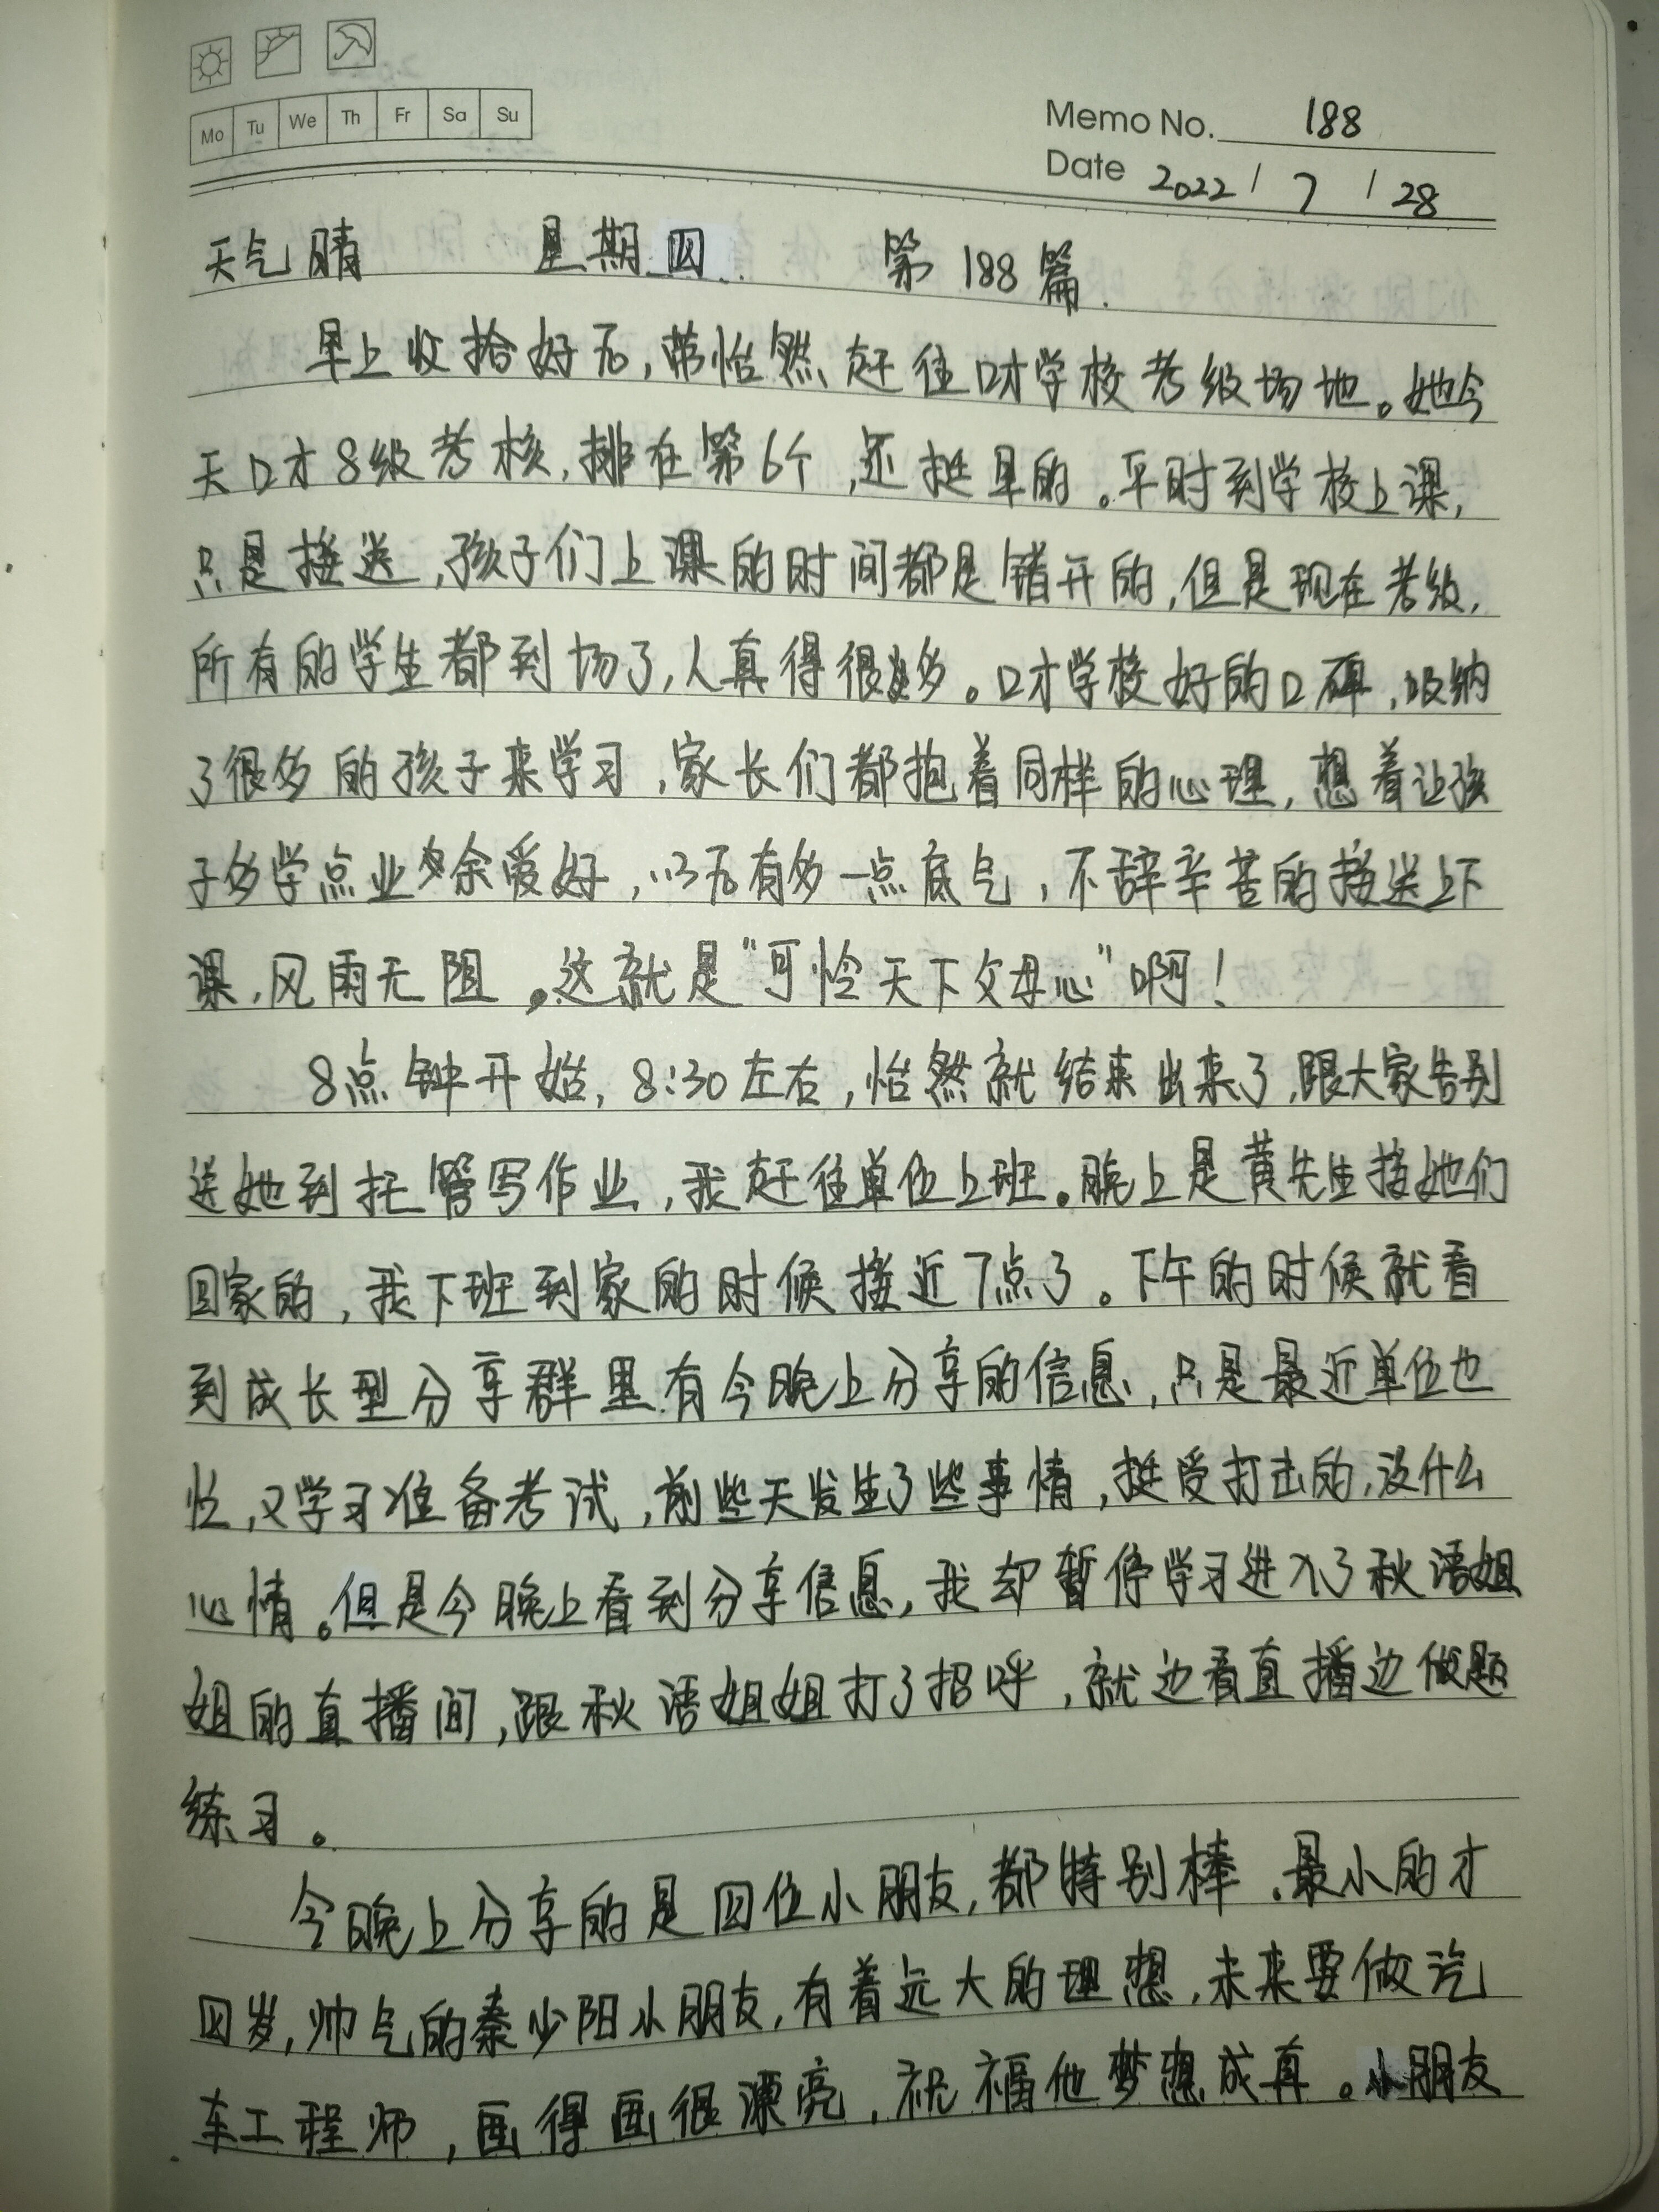 Mo Tu We Th Fr Sa Su
Memo No. 188
Date 2022 / 7 / 28
天气晴 星期四 第188篇.
早上收拾好后,带怡然赶往口才学校考级场地。她今
天口才8级考核,排在第6个,还挺早的。平时到学校上课,
只是接送,孩子们上课的时间都是错开的,但是现在考级,
所有的学生都到场了,人真得很多。口才学校好的口碑,吸纳
了很多的孩子来学习,家长们都抱着同样的心理,想着让孩
子多学点业余爱好,以后有多一点底气,不辞辛苦的接送上下
课,风雨无阻。这就是“可怜天下父母心”啊!
8点钟开始,8:30左右,怡然就结束出来了,跟大家告别
送她到托管写作业,我赶往单位上班。晚上是黄先生接她们
回家的,我下班到家的时候接近7点了。下午的时候就看
到成长型分享群里有今晚上分享的信息,只是最近单位也
忙,又学习准备考试,前些天发生了些事情,挺受打击的,没什么
心情。但是今晚上看到分享信息,我却暂停学习进入了秋语姐
姐的直播间,跟秋语姐姐打了招呼,就边看直播边做题
练习。
今晚上分享的是四位小朋友,都特别棒.最小的才
四岁,帅气的秦少阳小朋友,有着远大的理想,未来要做汽
车工程师,画得画很漂亮,祝福他梦想成真。小朋友